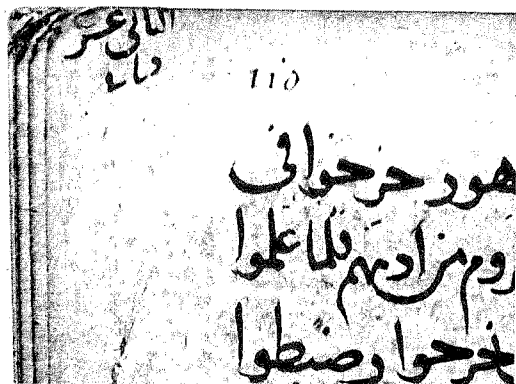 الثاني عشر
110
هور خرجوا في
روم من ادبهم فلما علموا
خرجوا وضبطوا